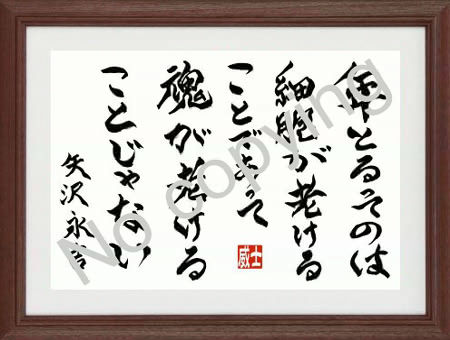 年とるってのは
細胞が老ける
ことであって
魂が老ける
ことじゃない
矢沢永吉
威士
No copying